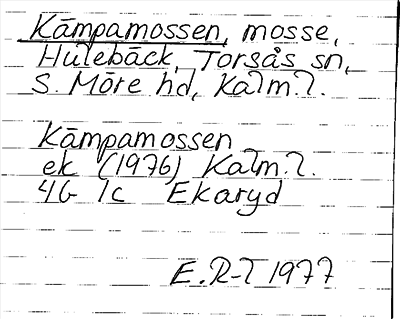 Kämpamossen, mosse,
Hulebäck, Torsås sn,
S. Möre hd, Kalm. l.
Kämpamossen
ek (1976) Kalm. l.
4G 1c Ekaryd
E. R-T 1977